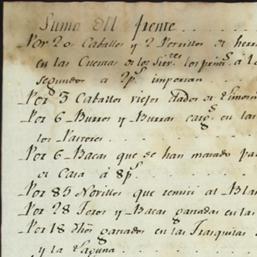 Suma del frente
Por 20 Caballos y 2 Porrillos de
en las Cuentas de los Sirv.tes los prim.s à 10
segundo à 2p.s importan
Por 3 Caballos viejos dados de
Por 6 Burros y Burras carg.s en las
los
Por 6 Bacas que se han matado pa
de Casa à 8p.s
Por 85 Novillos que remiti al Blan
Por 28 Toros y Bacas ganadas en las
Por 18 ganados en las Trasquilas
y la Laguna